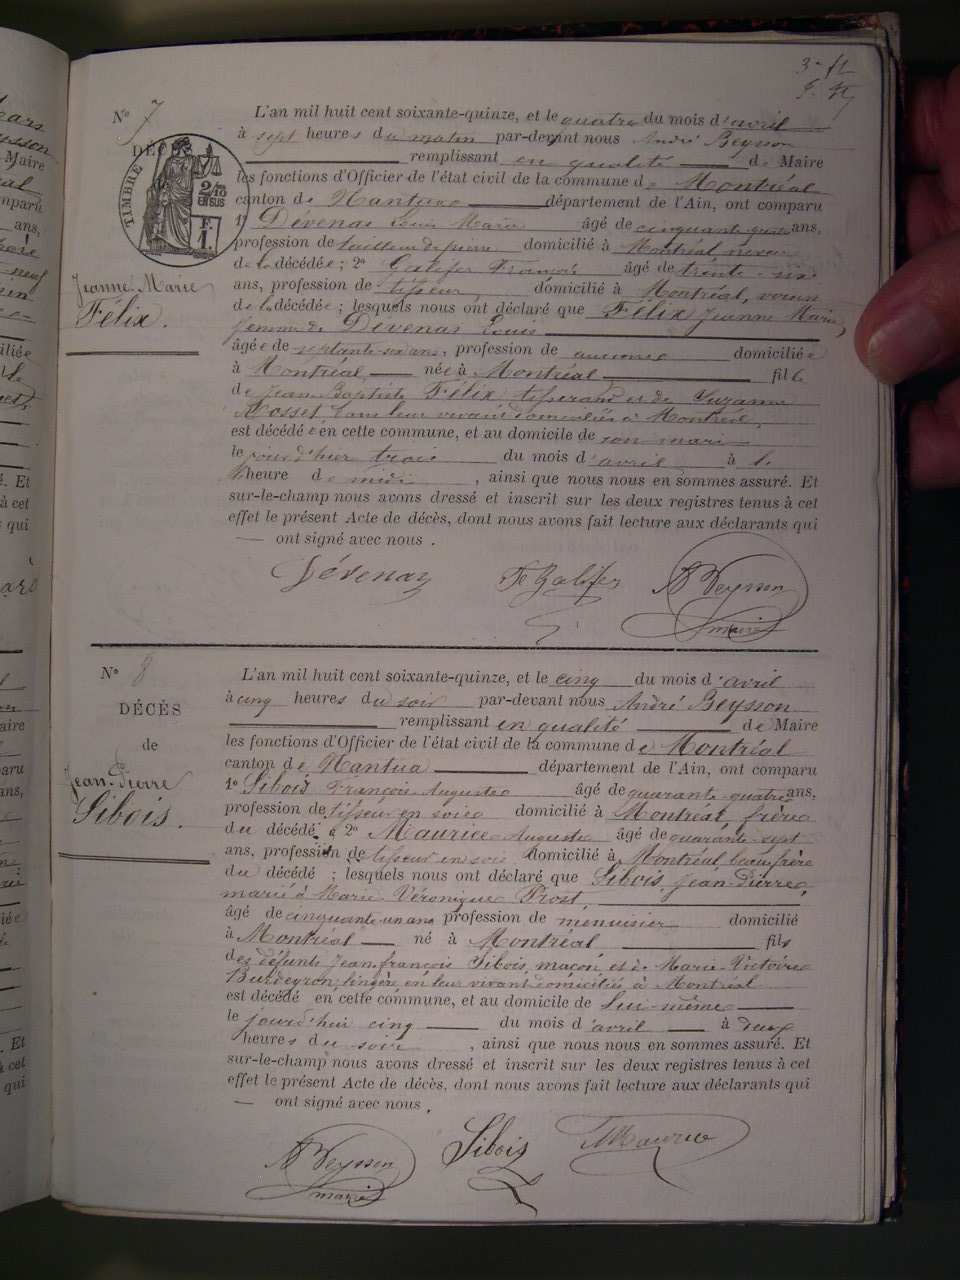 3e ft
Nº 7
DÉC
TIMBRE
2/10
EN SUS
F.
1.
Jeanne Marie
Félix.
L'an mil huit cent soixante-quinze, et le quatre du mois d'avril
à sept heures du matin par-devant nous André Beysson
remplissant en qualité de Maire
les fonctions d'Officier de l'état civil de la commune de Montréal
canton de Nantua département de l'Ain, ont comparu
1º Devenas Louis Marie âgé de cinquante ans,
profession de tailleur de pierre domicilié à Montréal, neveu
de la décédée; 2º Galifer François âgé de trente-six
ans, profession de tisseur domicilié à Montréal, voisin
de la décédée; lesquels nous ont déclaré que Félix Jeanne Marie,
femme de Devenas Louis
âgée de septante-six ans, profession de aucune domiciliée
à Montréal, née à Montréal fille
de Jean-Baptiste Félix tisserand et de Suzanne
Mosset tous leur vivant domiciliés à Montréal,
est décédée en cette commune, et au domicile de son mari
le jour d'hier trois du mois d'avril à la
heure de midi, ainsi que nous nous en sommes assuré. Et
sur-le-champ nous avons dressé et inscrit sur les deux registres tenus à cet
effet le présent Acte de décès, dont nous avons fait lecture aux déclarants qui
— ont signé avec nous.
Dévenas Fs Galifer A Beysson
maire
Nº 8
DÉCÈS
de
Jean-Pierre
Sibois.
L'an mil huit cent soixante-quinze, et le cinq du mois d'avril
à cinq heures du soir par-devant nous André Beysson
remplissant en qualité de Maire
les fonctions d'Officier de l'état civil de la commune de Montréal
canton de Nantua département de l'Ain, ont comparu
1º Sibois François Auguste âgé de quarante-quatre ans,
profession de tisseur en soie domicilié à Montréal, frère
du décédé; & 2º Maurice Auguste âgé de quarante-sept
ans, profession de tisseur en soie domicilié à Montréal beau-frère
du décédé; lesquels nous ont déclaré que Sibois, Jean-Pierre,
marié à Marie Véronique Prost,
âgé de cinquante-un ans profession de menuisier domicilié
à Montréal né à Montréal fils
des défunts Jean-François Sibois, maçon, et de Marie-Victoire
Burdeyron, lingère, en leur vivant domiciliés à Montréal
est décédé en cette commune, et au domicile de lui-même
le jourd'hui cinq du mois d'avril à deux
heures du soir, ainsi que nous nous en sommes assuré. Et
sur-le-champ nous avons dressé et inscrit sur les deux registres tenus à cet
effet le présent Acte de décès, dont nous avons fait lecture aux déclarants qui
— ont signé avec nous.
A Beysson Sibois Maurice
maire